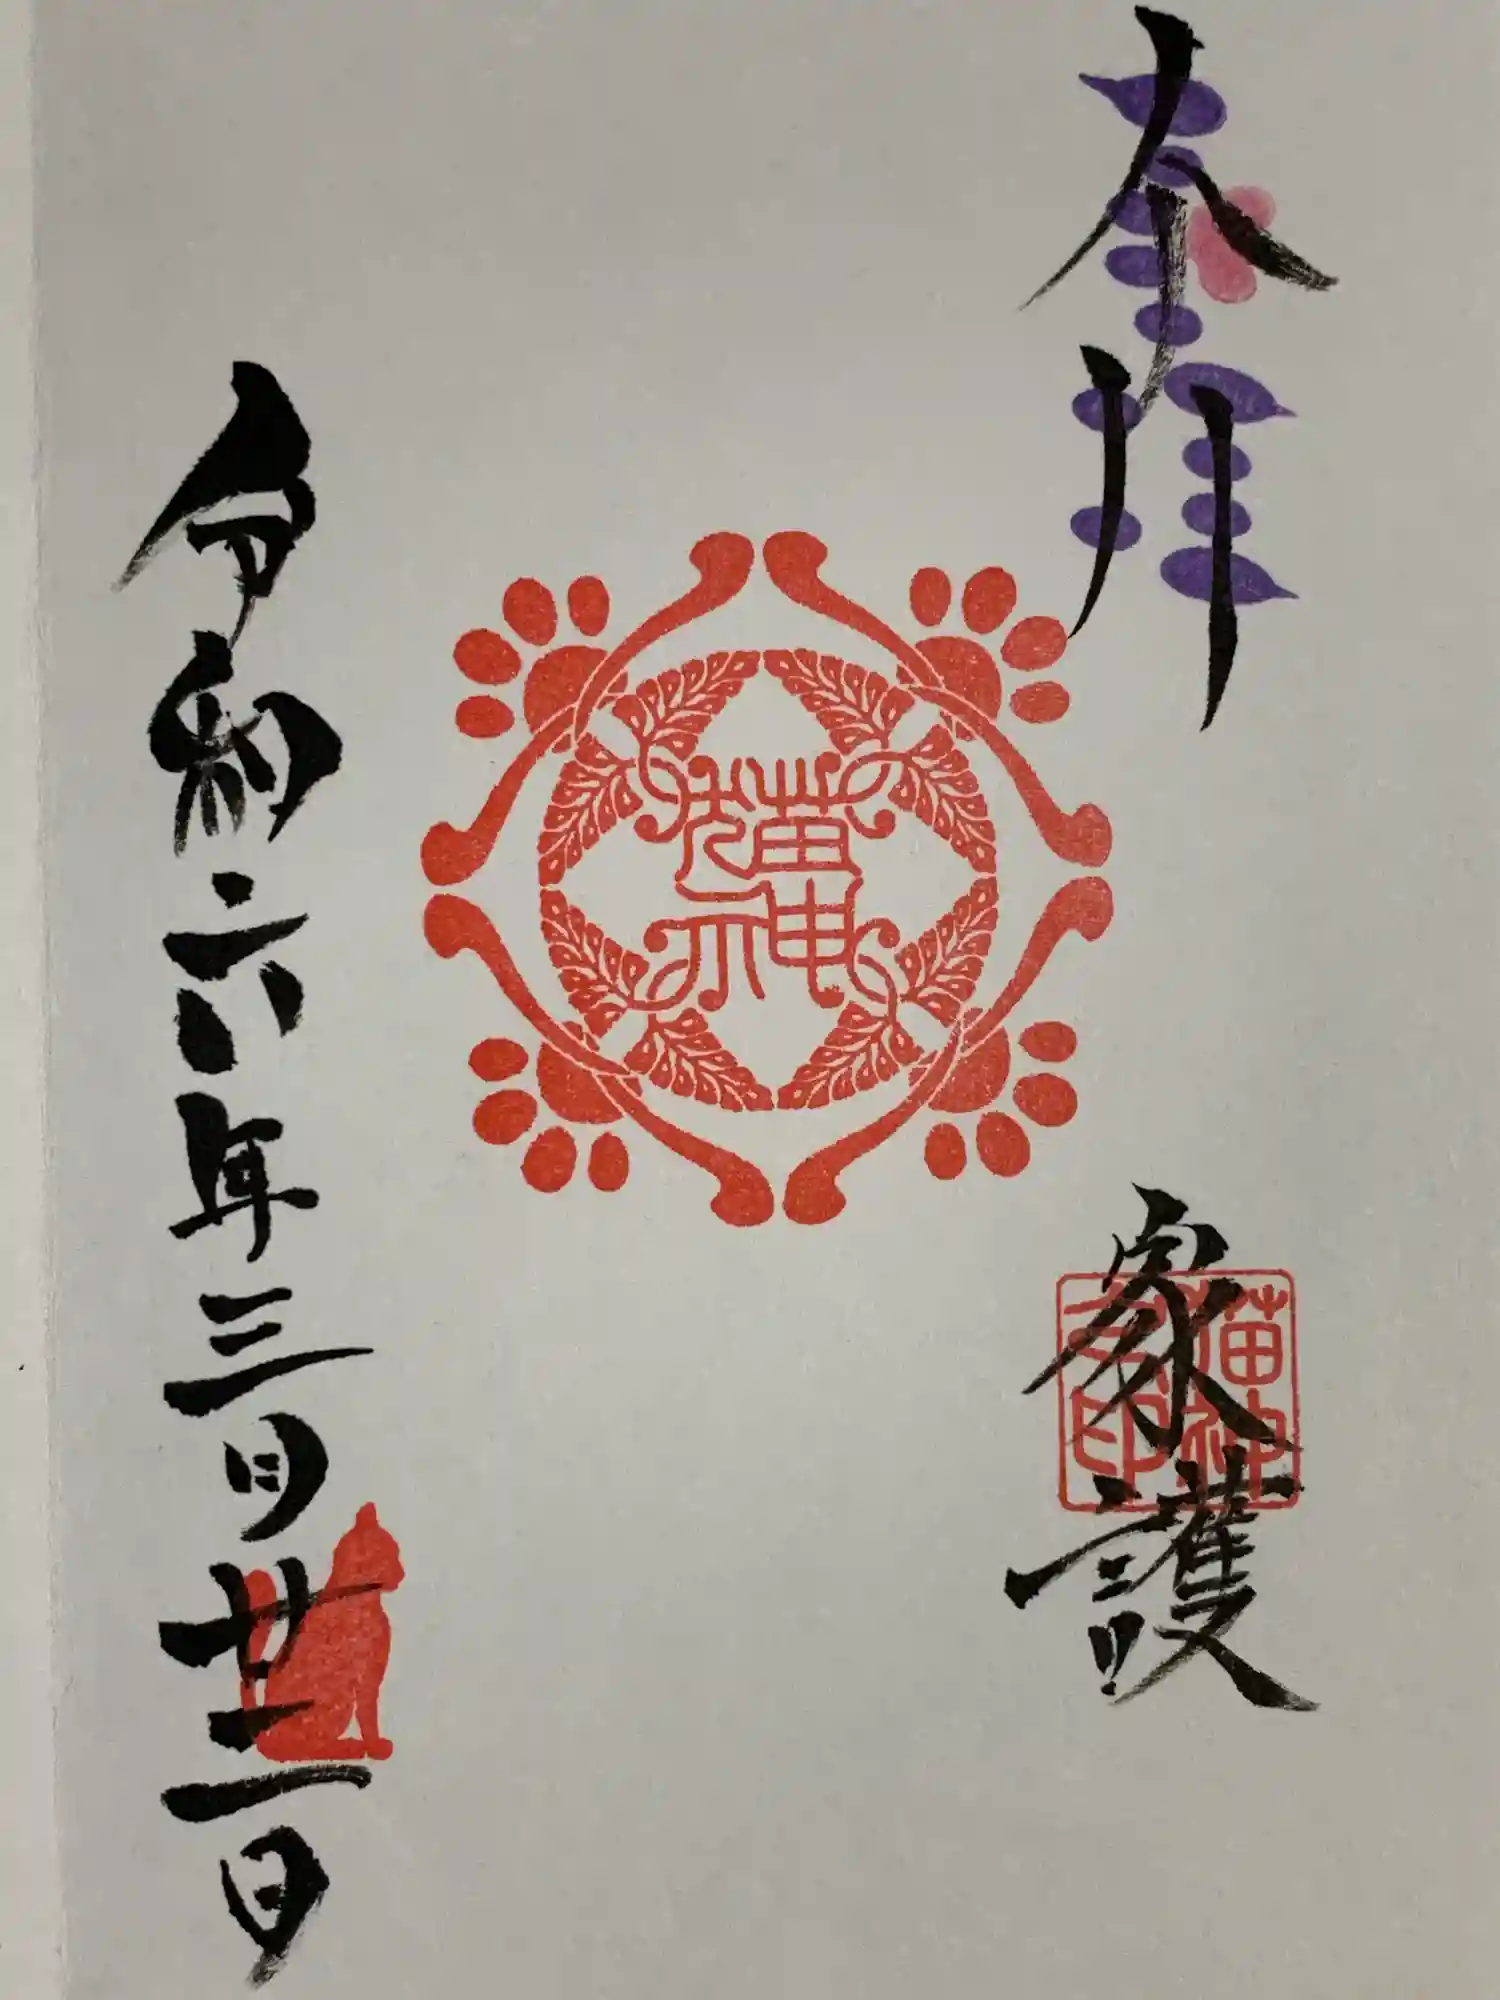 奉拝
家護
猫神
猫神
印
令和六年三月廿二日